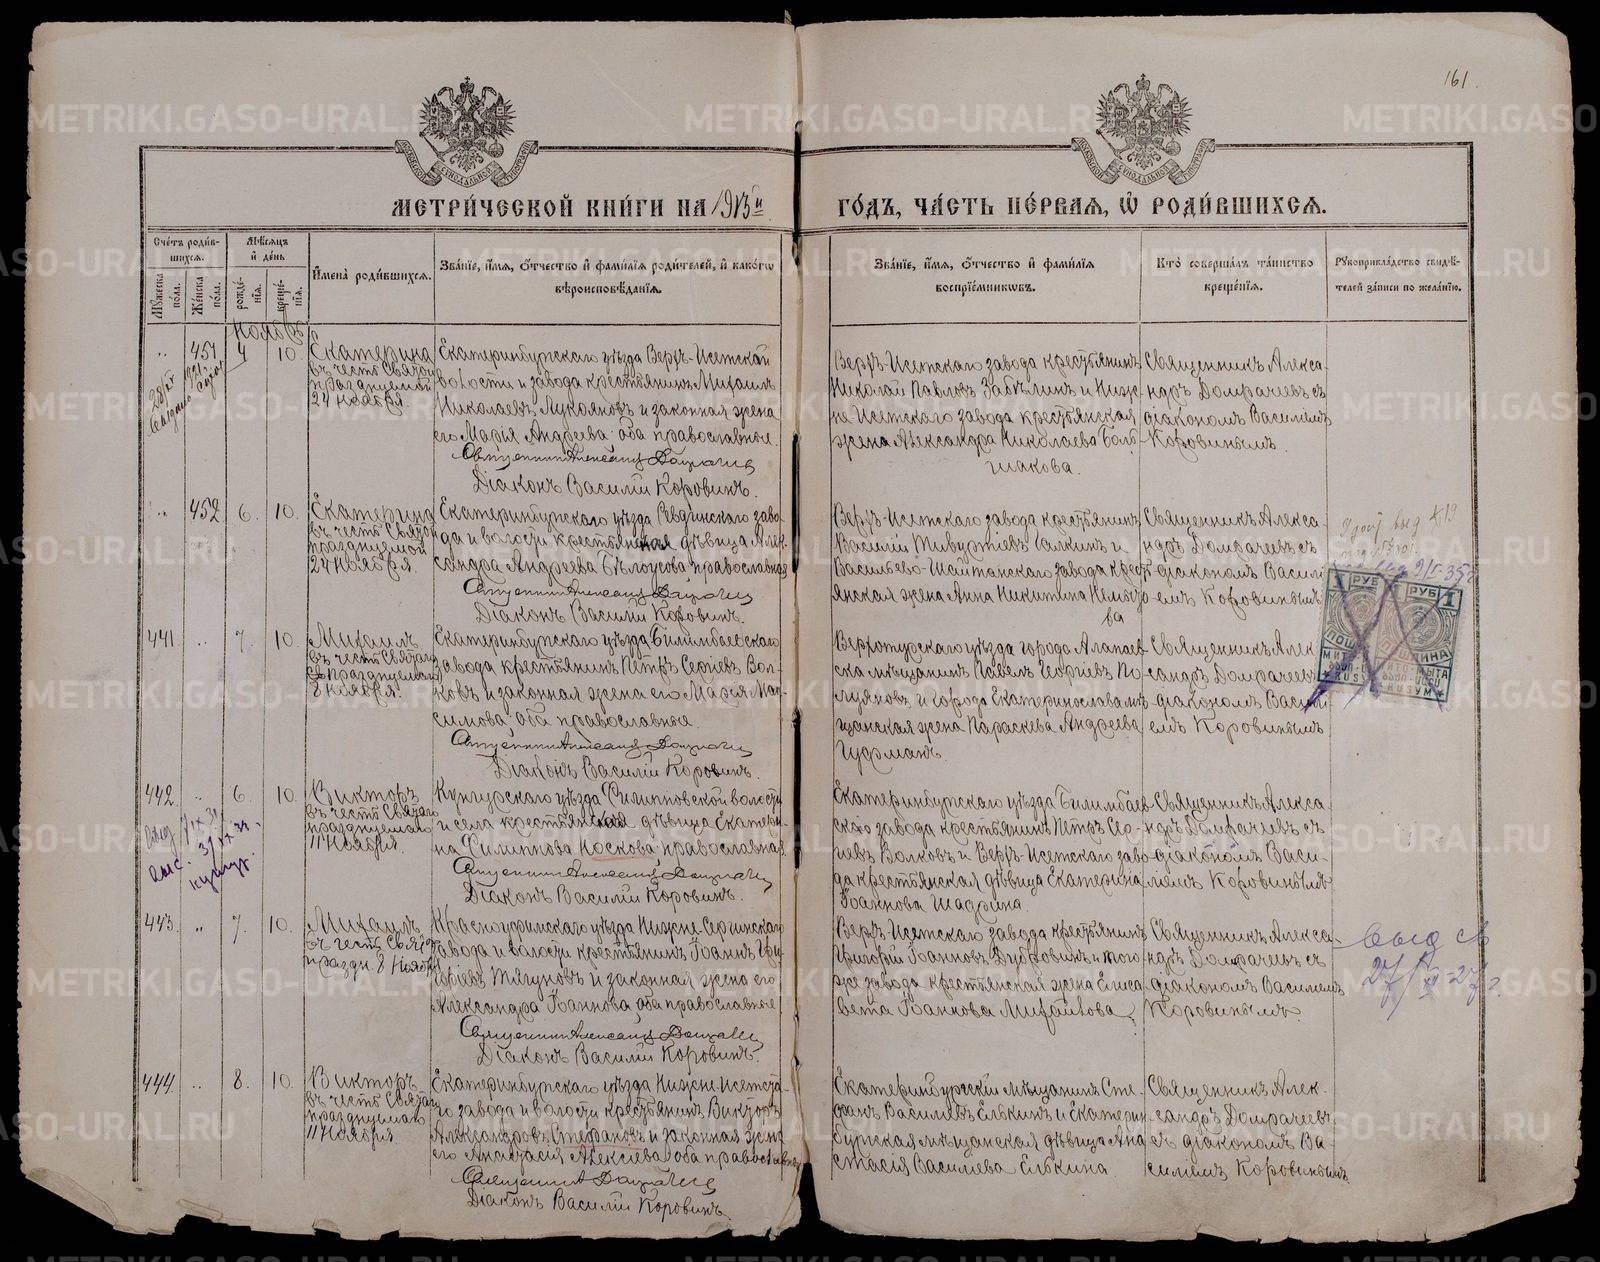 161.
МЕТРИ́ЧЕСКОЙ КНИ́ГИ НА 1913й ГО́ДЪ, ЧА́СТЬ ПЕ́РВАЯ, Ѡ҆ РОДИ́ВШИХСЯ.
Сче́тъ роди́вшихся.
Мꙋ́жеска по́ла.
Же́нска по́ла.
Мѣ́сяцъ и҆ де́нь
рожде́нія.
креще́нія.
И҆мена̀ роди́вшихся.
Зва́ніе, и҆́мя, ѻ҆́тчество и҆ фами́лія роди́телей, и҆ како́гѡ
вѣроисповѣ́данія.
Зва́ніе, и҆́мя, ѻ҆́тчество и҆ фами́лія
воспріе́мникѡвъ.
Кто̀ соверша́лъ та́инство
креще́нія.
Рꙋкоприкла́дство свидѣ́-
телей за́писи по жела́нію.
Ноябрь
451 4 10. Екатерина
въ честь Святой
празднуемой
24 ноября.
Екатеринбургскаго уѣзда Верхъ-Исетской
волости и завода крестьянинъ Михаилъ
Николаевъ Лукояновъ и законная жена
его Марія Андреева оба православные.
Священникъ Александръ Домрачевъ
Діаконъ Василій Коровинъ.
Верхъ-Исетскаго завода крестьянинъ
Николай Павловъ Забѣлинъ и Ниж-
не Исетскаго завода крестьянская
жена Александра Николаева Боль-
шакова.
Священникъ Алекса-
ндръ Домрачевъ съ
діакономъ Василіемъ
Коровинымъ.
452 6. 10. Екатерина
въ честь Святой
празднуемой
24 ноября.
Екатеринбургскаго уѣзда Ревдинскаго заво-
да и волости крестьянская дѣвица Алек-
сандра Андреева Бѣлоусова православная
Священникъ Александръ Домрачевъ
Діаконъ Василій Коровинъ.
Верхъ-Исетскаго завода крестьянинъ
Василій Тивуртіевъ Галкинъ и
Васильево-Шайтанскаго завода крест-
янская жена Анна Никитина
ва
Священникъ Алекса-
ндръ Домрачевъ съ
діакономъ Василі-
емъ Коровинымъ
1 РУБ РУБ 1
441 7. 10. Михаилъ
въ честь Святаго
празднуемаго
8 ноября.
Екатеринбургскаго уѣзда Билимбаевскаго
завода крестьянинъ Петръ Сергіевъ Вол-
ковъ и законная жена его Марія Мак-
симова оба православные.
Священникъ Александръ Домрачевъ
Діаконъ Василій Коровинъ.
Верхотурскаго уѣзда города Алапаев-
ска мѣщанинъ Павелъ Георгіевъ По-
луяновъ и города Екатеринославля мѣ-
щанская жена Параскева Андреева
Гуфманъ.
Священникъ Алек-
сандръ Домрачевъ
діакономъ Васили-
емъ Коровинымъ
442 6. 10. Викторъ
въ честь Святаго
празднуемаго
11 ноября.
Кунгурскаго уѣзда Филипповской волости
и села крестьянская дѣвица Екатери-
на Филиппова Носкова православная.
Священникъ Александръ Домрачевъ
Діаконъ Василій Коровинъ.
Екатеринбургскаго уѣзда Билимбаев-
скаго завода крестьянинъ Петръ Сер-
гіевъ Волковъ и Верхъ-Исетскаго заво-
да крестьянская дѣвица Екатерина
Іоаннова Шадрина.
Священникъ Алекса-
ндръ Домрачевъ съ
діакономъ Васи-
ліемъ Коровинымъ
443. 7. 10. Михаилъ
въ честь Святаго
праздн. 8 ноября
Красноуфимскаго уѣзда Нижне-Сергинскаго
завода и волости крестьянинъ Іоаннъ Гри-
горіевъ Тягуновъ и законная жена его
Александра Іоаннова оба православные
Священникъ Александръ Домрачевъ
Діаконъ Василій Коровинъ.
Верхъ Исетскаго завода крестьянинъ
Григорій Іоанновъ Дубровинъ и того
же завода крестьянская жена Елиса-
вета Іоаннова Михайлова.
Священникъ Алекса-
ндръ Домрачевъ съ
діакономъ Василіемъ
Коровинымъ.
444. 8. 10. Викторъ
въ честь Святаго
празднуемаго
11 ноября.
Екатеринбургскаго уѣзда Нижне-Исетска-
го завода и волости крестьянинъ Викторъ
Александровъ Стефановъ и законная жена
его Анастасія Алексіева оба православные
Священникъ А Домрачевъ
Діаконъ Василій Коровинъ.
Екатеринбургскій мѣщанинъ Сте-
фанъ Василіевъ Елькинъ и Екатерин-
бургская мѣщанская дѣвица Ана-
стасія Василіева Елькина
Священникъ Алек-
сандръ Домрачевъ
съ діакономъ Ва-
силіемъ Коровинымъ
METRIKI.GASO-URAL.RU